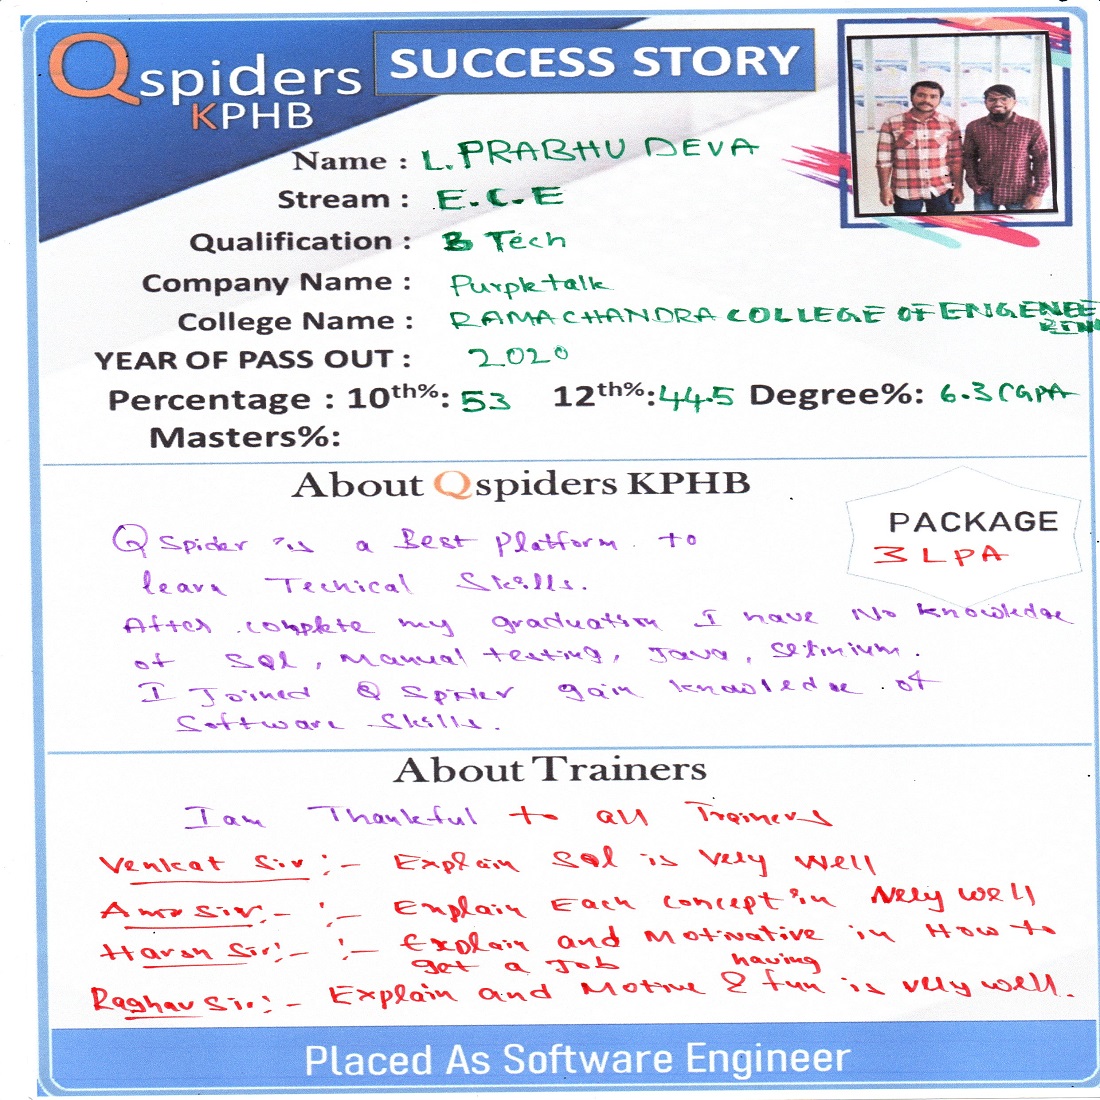 Qspiders
KPHB
SUCCESS STORY
Name : L. PRABHU DEVA
Stream : E.C.E
Qualification : B Tech
Company Name : Purple talk
College Name : RAMA CHANDRA COLLEGE OF ENGENEE
RING
YEAR OF PASS OUT : 2020
Percentage : 10th%: 53 12th%: 44.5 Degree%: 6.3 CGPA
Masters%:
About Qspiders KPHB
PACKAGE
3 LPA
Q Spider is a Best Platform. to
learn Techical Skills.
After complete my graduation I have No knowledge
of Sql, Manual testing, Java, Selinium.
I Joined Q Spider gain knowledge of
Software Skills.
About Trainers
I am Thankful to all Trainers
Venkat Sir :- Explain Sql is Very Well
Sir :- :- Explain Each concept in Very well
Harsh Sir :- :- Explain and Motivative in How to
get a Job
Raghav Sir :- Explain and Motive & having fun is very well.
Placed As Software Engineer